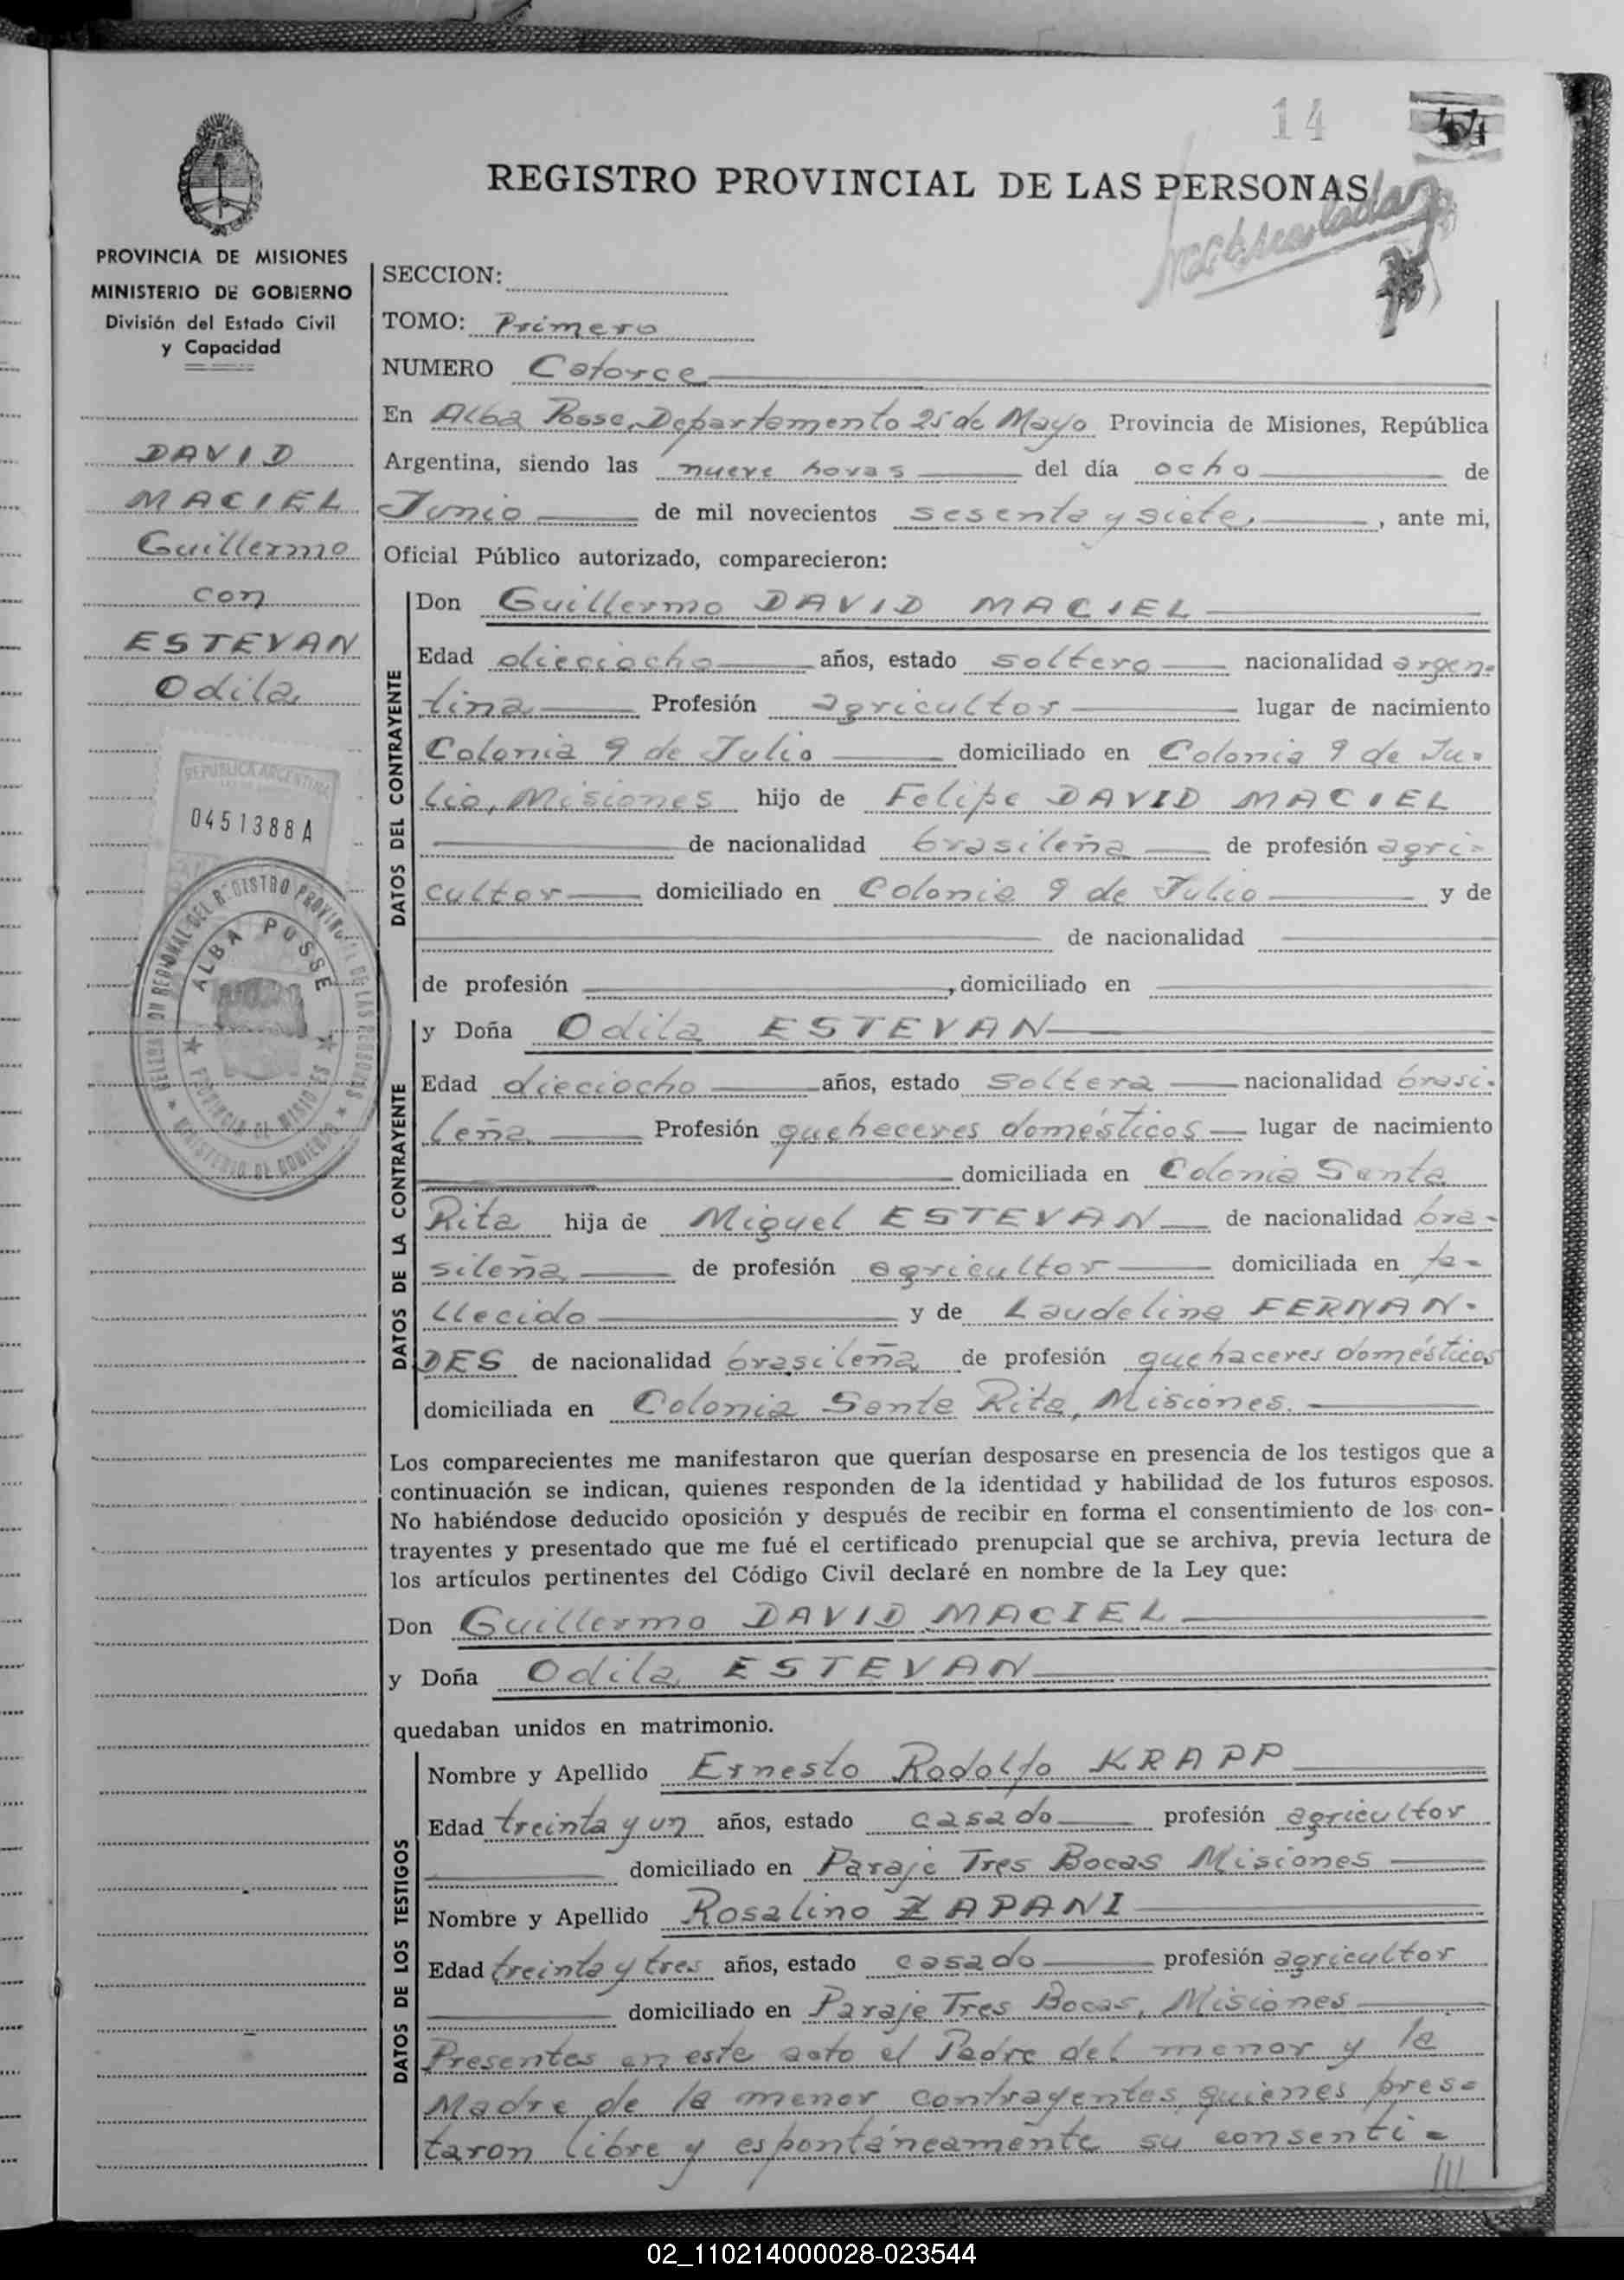 14
REGISTRO PROVINCIAL DE LAS PERSONAS
PROVINCIA DE MISIONES
MINISTERIO DE GOBIERNO
División del Estado Civil
y Capacidad
DAVID
MACIEL
Guillermo
con
ESTEVAN
Odila
REPUBLICA ARGENTINA
0451388A
DELEGACION REGIONAL DEL REGISTRO PROVINCIAL DE LAS PERSONAS
ALBA POSSE
PROVINCIA DE MISIONES
MINISTERIO DE GOBIERNO
SECCION:
TOMO: Primero
NUMERO Catorce
En Alba Posse, Departamento 25 de Mayo Provincia de Misiones, República
Argentina, siendo las nueve horas del día ocho de
Junio de mil novecientos sesenta y siete, , ante mi,
Oficial Público autorizado, comparecieron:
DATOS DEL CONTRAYENTE
Don Guillermo DAVID MACIEL
Edad dieciocho años, estado soltero nacionalidad argen-
tina Profesión agricultor lugar de nacimiento
Colonia 9 de Julio domiciliado en Colonia 9 de Ju-
lio, Misiones hijo de Felipe DAVID MACIEL
de nacionalidad brasileña de profesión agri-
cultor domiciliado en Colonia 9 de Julio y de
de nacionalidad
de profesión , domiciliado en
DATOS DE LA CONTRAYENTE
y Doña Odila ESTEVAN
Edad dieciocho años, estado soltera nacionalidad brasi-
leña Profesión quehaceres domésticos lugar de nacimiento
domiciliada en Colonia Santa
Rita hija de Miguel ESTEVAN de nacionalidad bra-
sileña de profesión agricultor domiciliada en fa-
llecido y de Laudelina FERNAN-
DES de nacionalidad brasileña de profesión quehaceres domésticos
domiciliada en Colonia Santa Rita, Misiones.
Los comparecientes me manifestaron que querían desposarse en presencia de los testigos que a
continuación se indican, quienes responden de la identidad y habilidad de los futuros esposos.
No habiéndose deducido oposición y después de recibir en forma el consentimiento de los con-
trayentes y presentado que me fué el certificado prenupcial que se archiva, previa lectura de
los artículos pertinentes del Código Civil declaré en nombre de la Ley que:
Don Guillermo DAVID MACIEL
y Doña Odila ESTEVAN
quedaban unidos en matrimonio.
DATOS DE LOS TESTIGOS
Nombre y Apellido Ernesto Rodolfo KRAPP
Edad treinta y un años, estado casado profesión agricultor
domiciliado en Paraje Tres Bocas Misiones
Nombre y Apellido Rosalino ZAPANI
Edad treinta y tres años, estado casado profesión agricultor
domiciliado en Paraje Tres Bocas, Misiones
Presentes en este acto el Padre del menor y la
Madre de la menor contrayentes, quienes pres-
taron libre y espontáneamente su consenti-
///
02_110214000028-023544